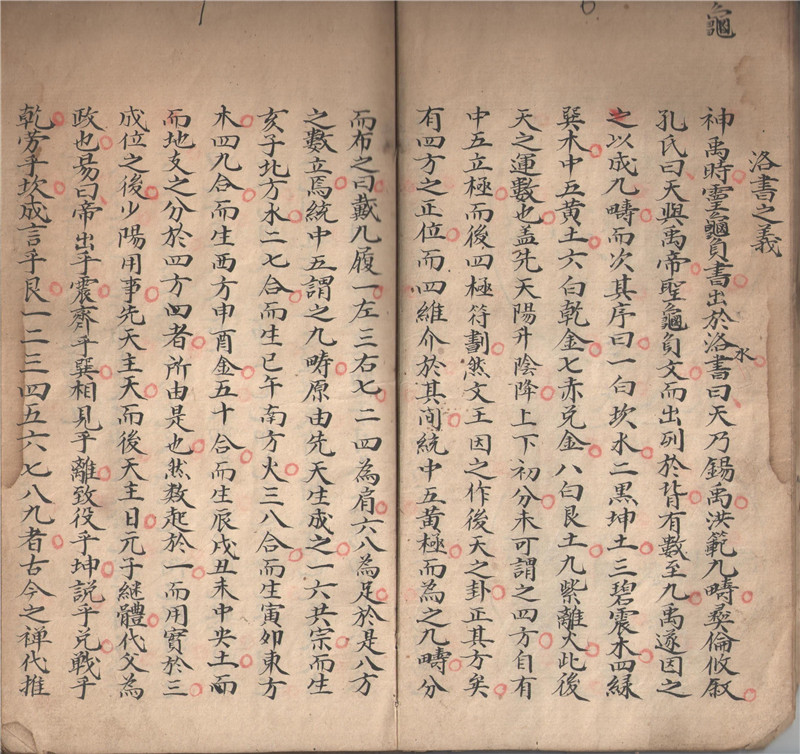 龜
洛書之義
神禹時靈龜負書出於洛水書曰天乃錫禹洪範九疇彞倫攸敘
孔氏曰天與禹帝聖龜負文而出列於背有數至九禹遂因之
之以成九疇而次其序曰一白坎水二黑坤土三碧震木四綠
巽木中五黃土六白乾金七赤兌金八白艮土九紫離火此後
天之運數也盖先天陽升陰降上下初分未可謂之四方自有
中五立極而後四極符劃然文王因之作後天之卦正其方矣
有四方之正位而四維介於其间統中五黃極而為之九疇分
而布之曰戴九履一左三右七二四為肩六八為足於是八方
之數立焉統中五謂之九疇原由先天生成之一六共宗而生
亥子北方水二七合而生巳午南方火三八合而生寅卯東方
木四九合而生西方申酉金五十合而生辰戌丑未中央土而
而地支之分於四方四者所由是也然数起於一而用實於三
成位之後少陽用事先天主天而後天主日元子継體代父為
政也易曰帝出乎震齊乎巽相見乎離致役乎坤説乎兌戰乎
乾劳乎坎成言乎艮一二三四五六七八九者古今之禅代推